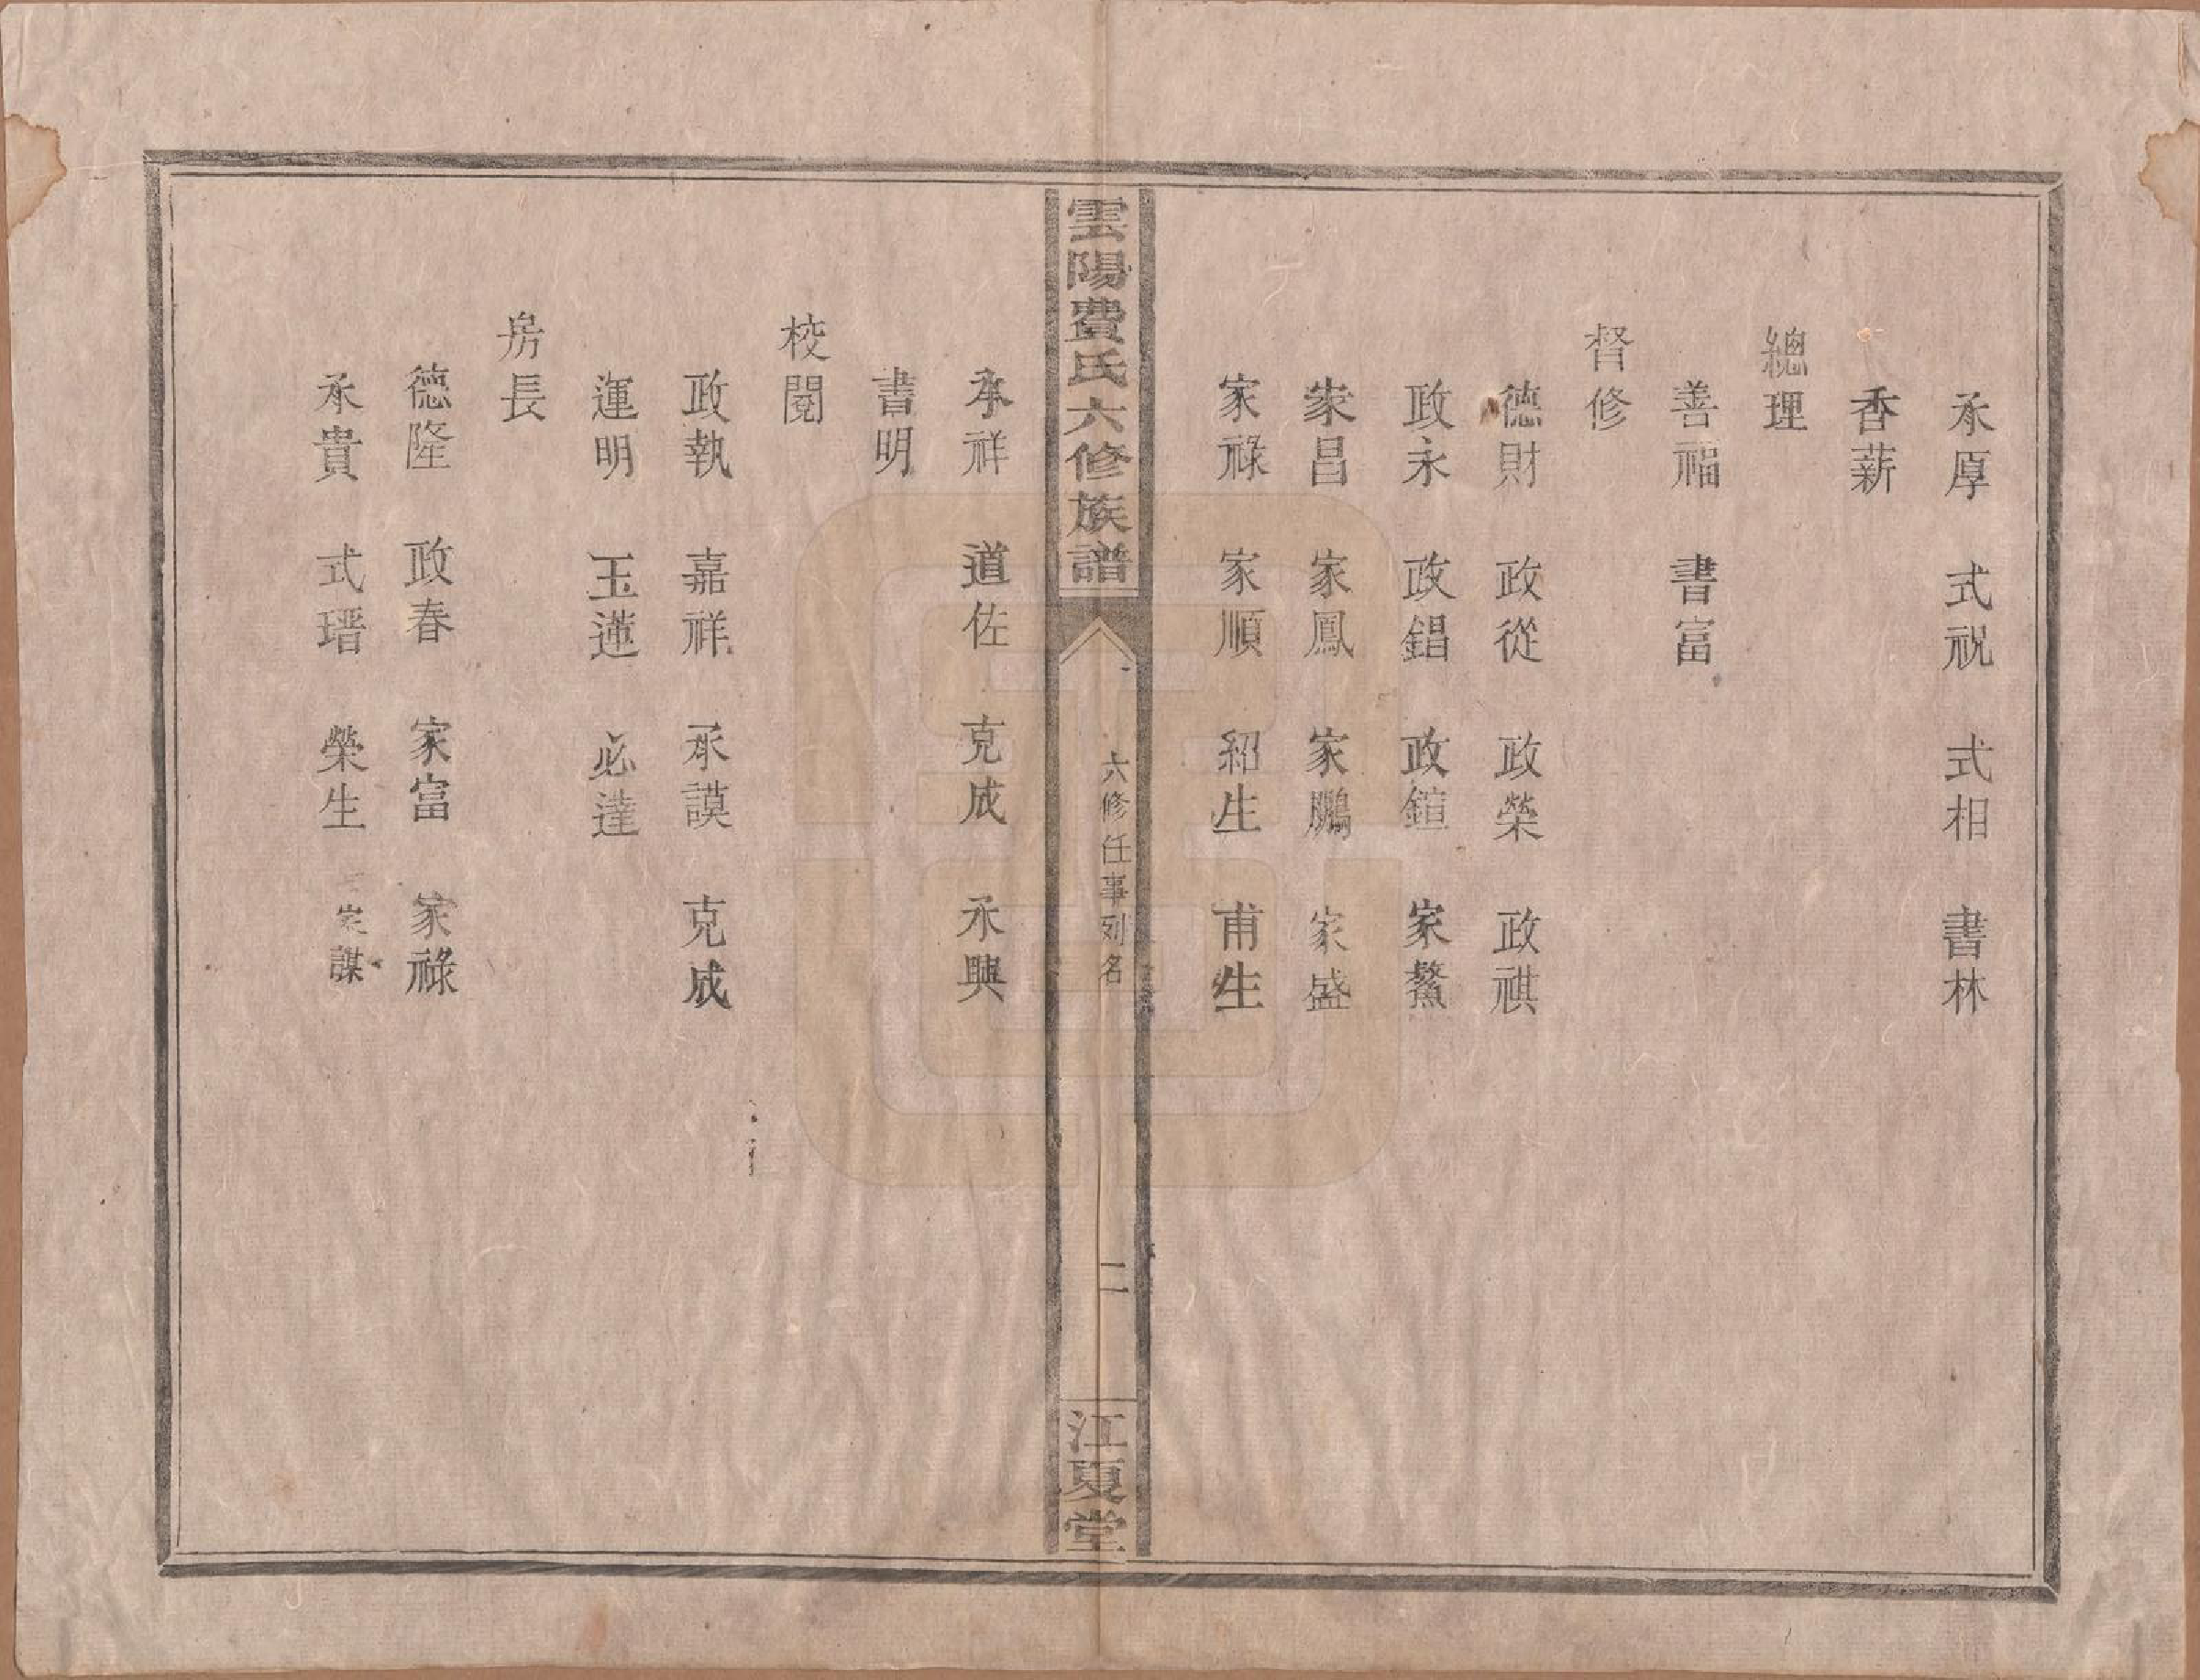 承厚 式祝 式相 書林
香薪
總理
善福 書富
督修
德財 政從 政榮 政祺
政永 政錩 政鍹 家鰲
家昌 家鳳 家鵬 家盛
家祿 家順 紹生 甫生
雲陽費氏六修族譜
六修任事列名
二
江夏堂
承祥 道佐 克成 承興
書明
校閱
政執 嘉祥 承謨 克成
運明 玉蓮 必達
房長
德隆 政春 家富 家祿
承貴 式瑨 榮生 家謀